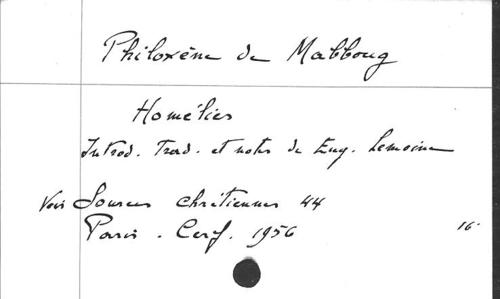 Philoxène de Mabboug
Homélies
Introd. Trad. et notes de Eug. Lemoine
Voir Sources Chrétiennes 44
Paris. Cerf. 1956 16°